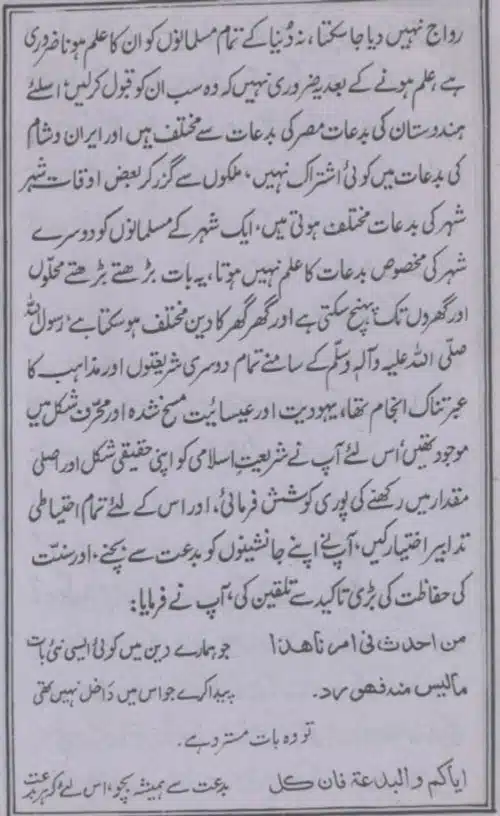 رواج نہیں دیا جا سکتا، نہ دُنیا کے تمام مسلمانوں کو ان کا علم ہونا ضروری
ہے، علم ہونے کے بعد یہ ضروری نہیں کہ وہ سب ان کو قبول کر لیں، اسلئے
ہندوستان کی بدعات مصر کی بدعات سے مختلف ہیں اور ایران و شام
کی بدعات میں کوئی اشتراک نہیں، ملکوں سے گزر کر بعض اوقات شہر
شہر کی بدعات مختلف ہوتی ہیں، ایک شہر کے مسلمانوں کو دوسرے
شہر کی مخصوص بدعات کا علم نہیں ہوتا، یہ بات بڑھتے بڑھتے محلّوں
اور گھروں تک پہنچ سکتی ہے اور گھر گھر کا دین مختلف ہو سکتا ہے، رسول اللہ
صلی اللہ علیہ وآلہٖ وسلّم کے سامنے تمام دوسری شریعتوں اور مذاہب کا
عبرتناک انجام تھا، یہودیت اور عیسائیت مسخ شدہ اور محرّف شکل میں
موجود تھیں، اس لئے آپ نے شریعتِ اسلامی کو اپنی حقیقی شکل اور اصلی
مقدار میں رکھنے کی پوری کوشش فرمائی، اور اس کے لئے تمام احتیاطی
تدابیر اختیار کیں، آپ نے اپنے جانشینوں کو بدعت سے بچنے، اور سنّت
کی حفاظت کی بڑی تاکید سے تلقین کی، آپ نے فرمایا:
من احدث فی امرنا ھٰذا جو ہمارے دین میں کوئی ایسی نئی بات
ما لیس منہ فھو رد۔ پیدا کرے جو اس میں داخل نہیں تھی
تو وہ بات مسترد ہے۔
ایاکم والبدعۃ فان کل بدعت سے ہمیشہ بچو، اس لئے کہ ہر بدعت